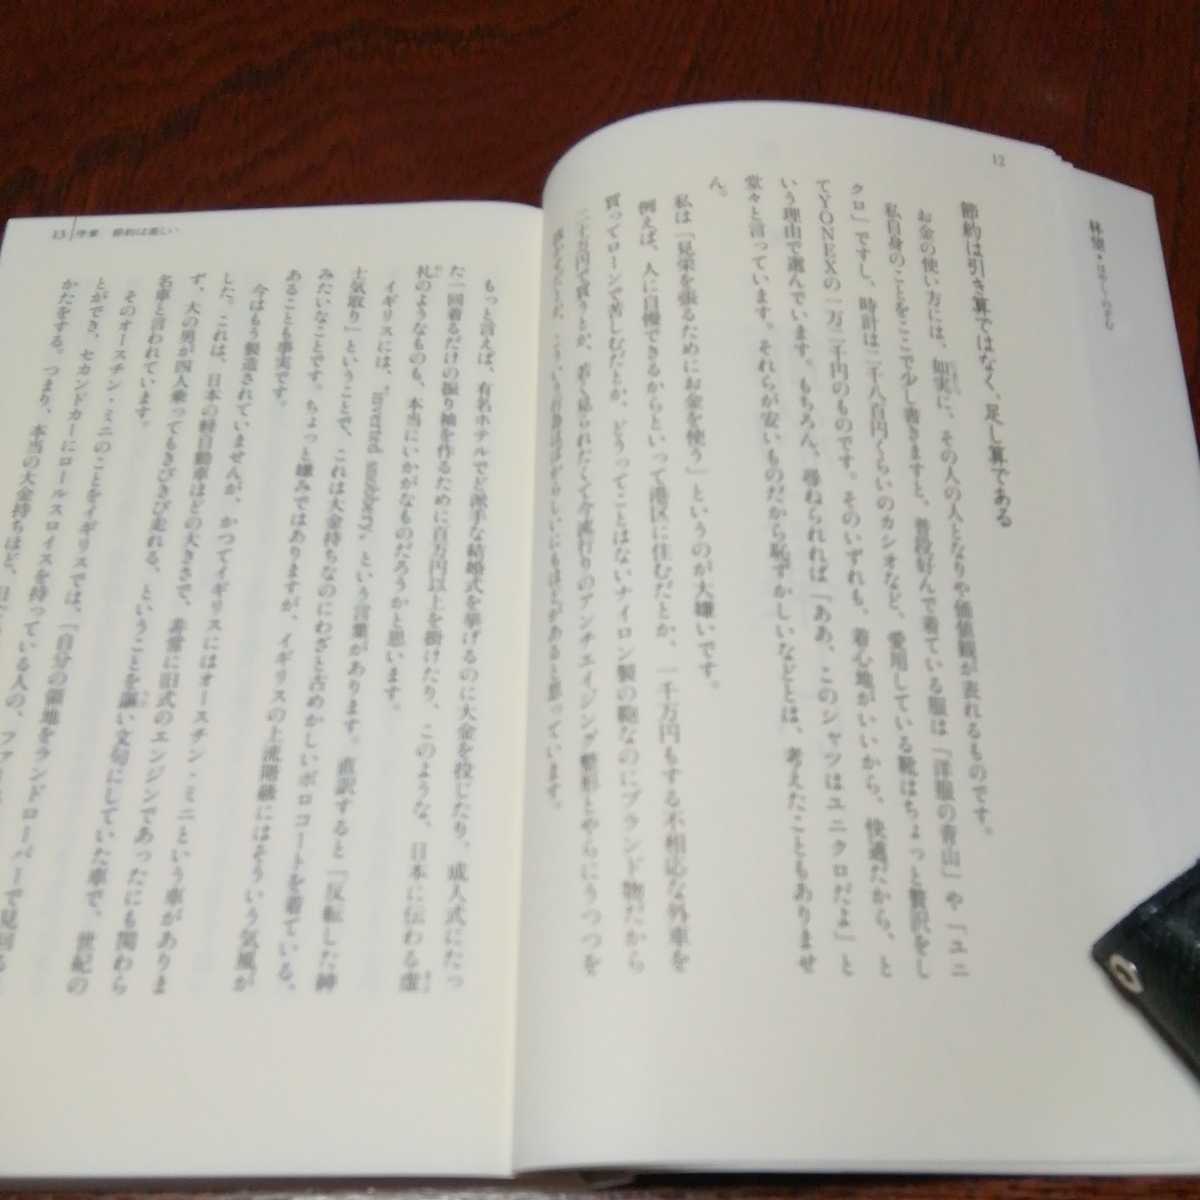 林望・はやしのぞむ
12
節約は引き算ではなく、足し算である
お金の使い方には、如実に、その人の人となりや価値観が表れるものです。
私自身のことをここで少し書きますと、普段好んで着ている服は『洋服の青山』や『ユニ
クロ』ですし、時計は二千八百円くらいのカシオなど、愛用している靴はちょっと贅沢をし
てYONEXの一万二千円のものです。そのいずれも、着心地がいいから、快適だから、と
いう理由で選んでいます。もちろん、尋ねられれば「ああ、このシャツはユニクロだよ」と
堂々と言っています。それらが安いものだから恥ずかしいなどとは、考えたこともありませ
ん。
私は「見栄を張るためにお金を使う」というのが大嫌いです。
例えば、人に自慢できるからといって港区に住むだとか、一千万円もする不相応な外車を
買ってローンで苦しむだとか、どうってことはないナイロン製の鞄なのにブランド物だから
二十万円で買うとか、若く見られたくて今流行りのアンチエイジング整形とやらにうつつを
13 序章 節約は楽しい
もっと言えば、有名ホテルでど派手な結婚式を挙げるのに大金を投じたり、成人式にたっ
た一回着るだけの振り袖を作るために百万円以上を掛けたり、このような、日本に伝わる虚
礼のようなものも、本当にいかがなものだろうかと思います。
イギリスには、"inverted snobbery"という言葉があります。直訳すると「反転した紳
士気取り」ということで、これは大金持ちなのにわざと古めかしいボロコートを着ている、
みたいなことです。ちょっと嫌みではありますが、イギリスの上流階級にはそういう気風が
あることも事実です。
今はもう製造されていませんが、かつてイギリスにはオースチン・ミニという車がありま
した。これは、日本の軽自動車ほどの大きさで、非常に旧式のエンジンであったにも関わら
ず、大の男が四人乗ってもきびきび走れる、ということを謳い文句にしていた車で、世紀の
名車と言われています。
そのオースチン・ミニのことをイギリスでは、「自分の領地をランドローバーで見回る
とができ、セカンドカーにロールスロイスを持っている人の、ファ
かたをする。つまり、本当の大金持ちほど、